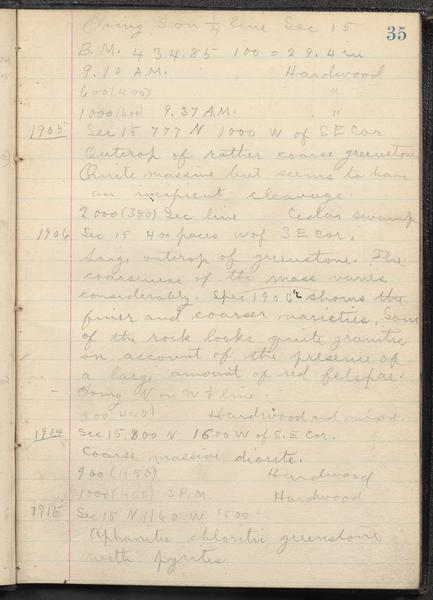 Going S on ¼ line Sec 15
35
B.M. 434.85 100 = 29.4 m
9.10 A.M. Hardwood
600 (400) "
1000 (400) 9.37 A.M. "
1905 Sec 15 777 N 1000 W of S E Cor
Outcrop of rather coarse greenstone
Quite massive but seems to have
an incipient cleavage.
2000 (380) Sec line Cedar swamp
1906 Sec 15 400 paces W of S E Cor.
Large outcrop of greenstone. The
coarseness of the mass varies
considerably. Spec 1906 shows the
finer and coarser varieties. Some
of the rock looks quite granitic
on account of the presence of
a large amount of red felspar.
Going N on W ¼ line.
500 (440) Hardwood and mixed.
1914 Sec 15, 800 N 1600 W of S.E Cor.
Coarse massive diorite.
900 (450) Hardwood
1000 (450) 3 P.M. Hardwood
1915 Sec 15 N 1160 W 1500
Aphanitic chloritic greenstone
with pyrites